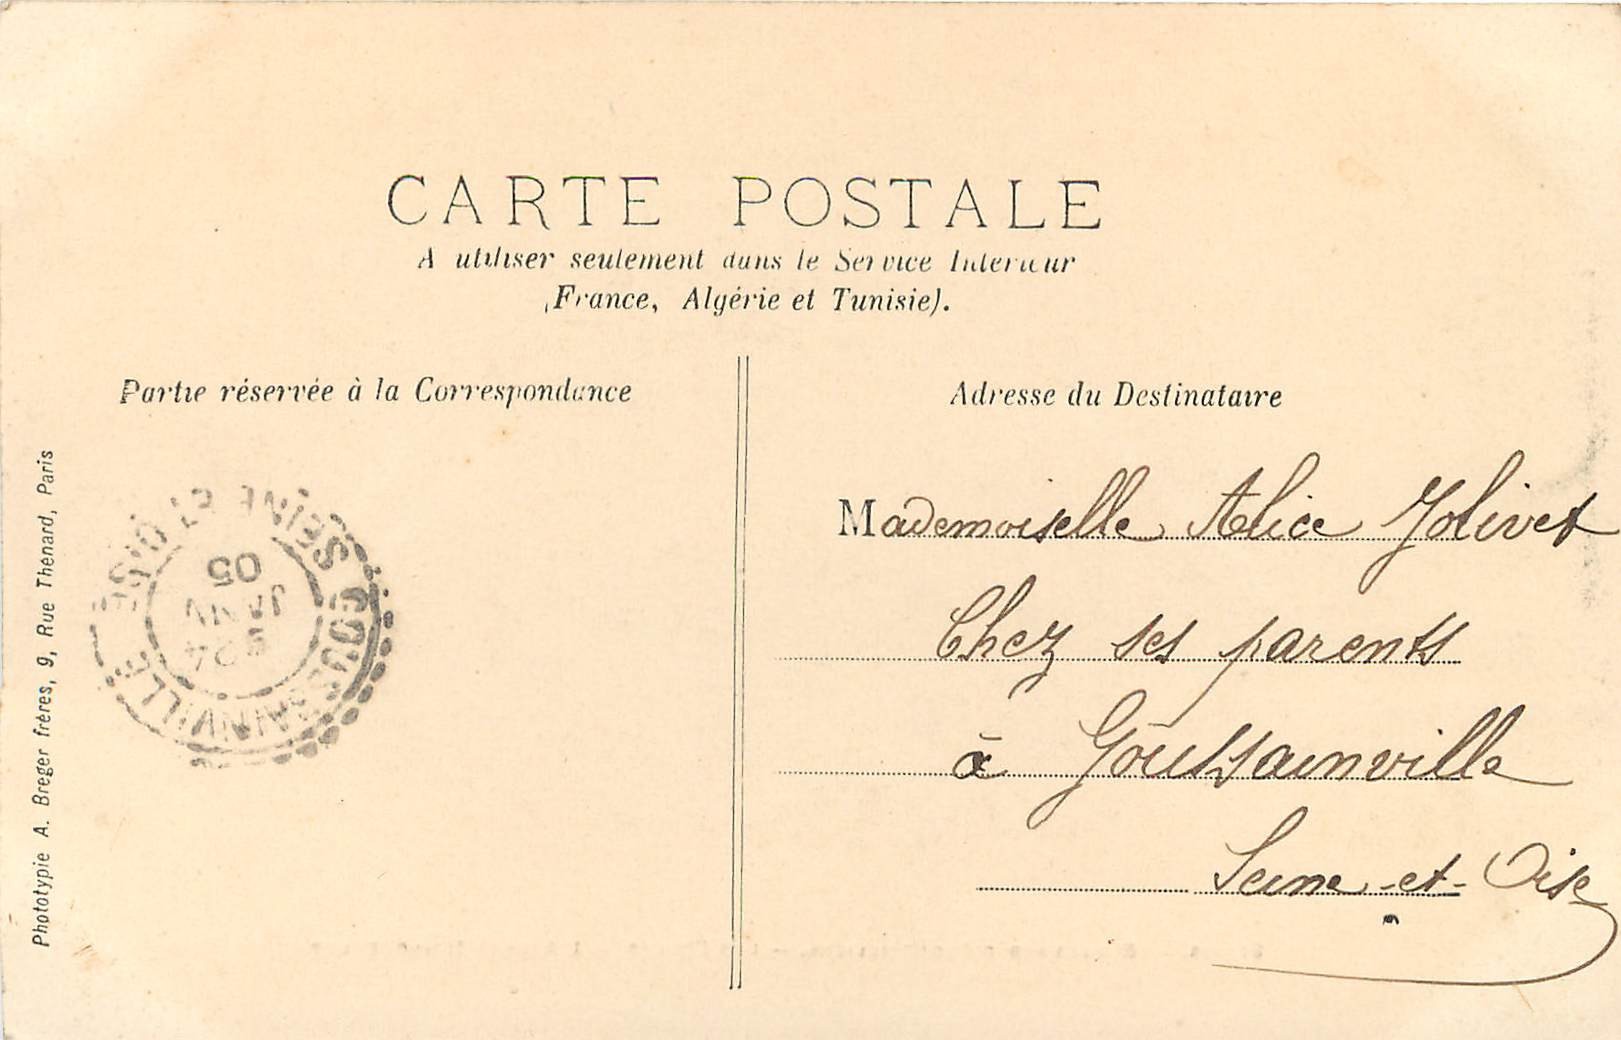 CARTE POSTALE
A utiliser seulement dans le Service Intérieur
(France, Algérie et Tunisie).
Partie réservée à la Correspondance
Adresse du Destinataire
Mademoiselle Alice Jolivet
Chez ses parents
à Goussainville
Seine-et-Oise
GOUSSAINVILLE
SEINE ET OISE
JANV
05
Phototypie A. Breger frères, 9, Rue Thénard, Paris